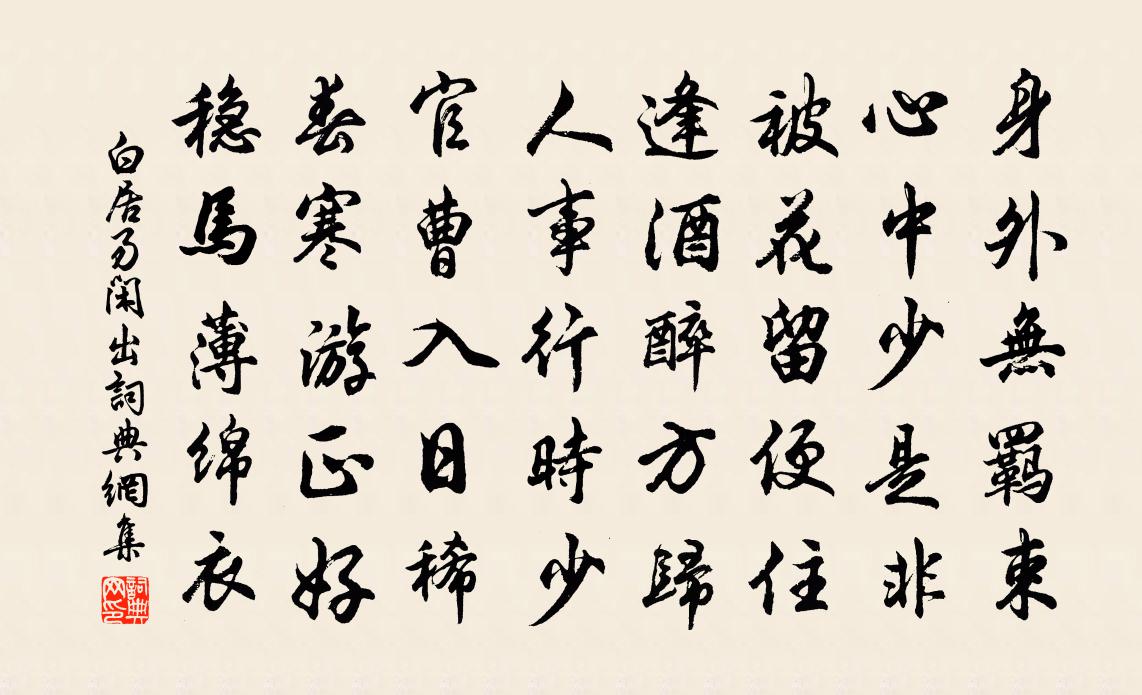 身外無羈束
心中少是非
被花留便住
逢酒醉方歸
人事行時少
官曹入日稀
春寒游正好
稳馬薄綿衣
白居易閑出詞典網集
詞典网印